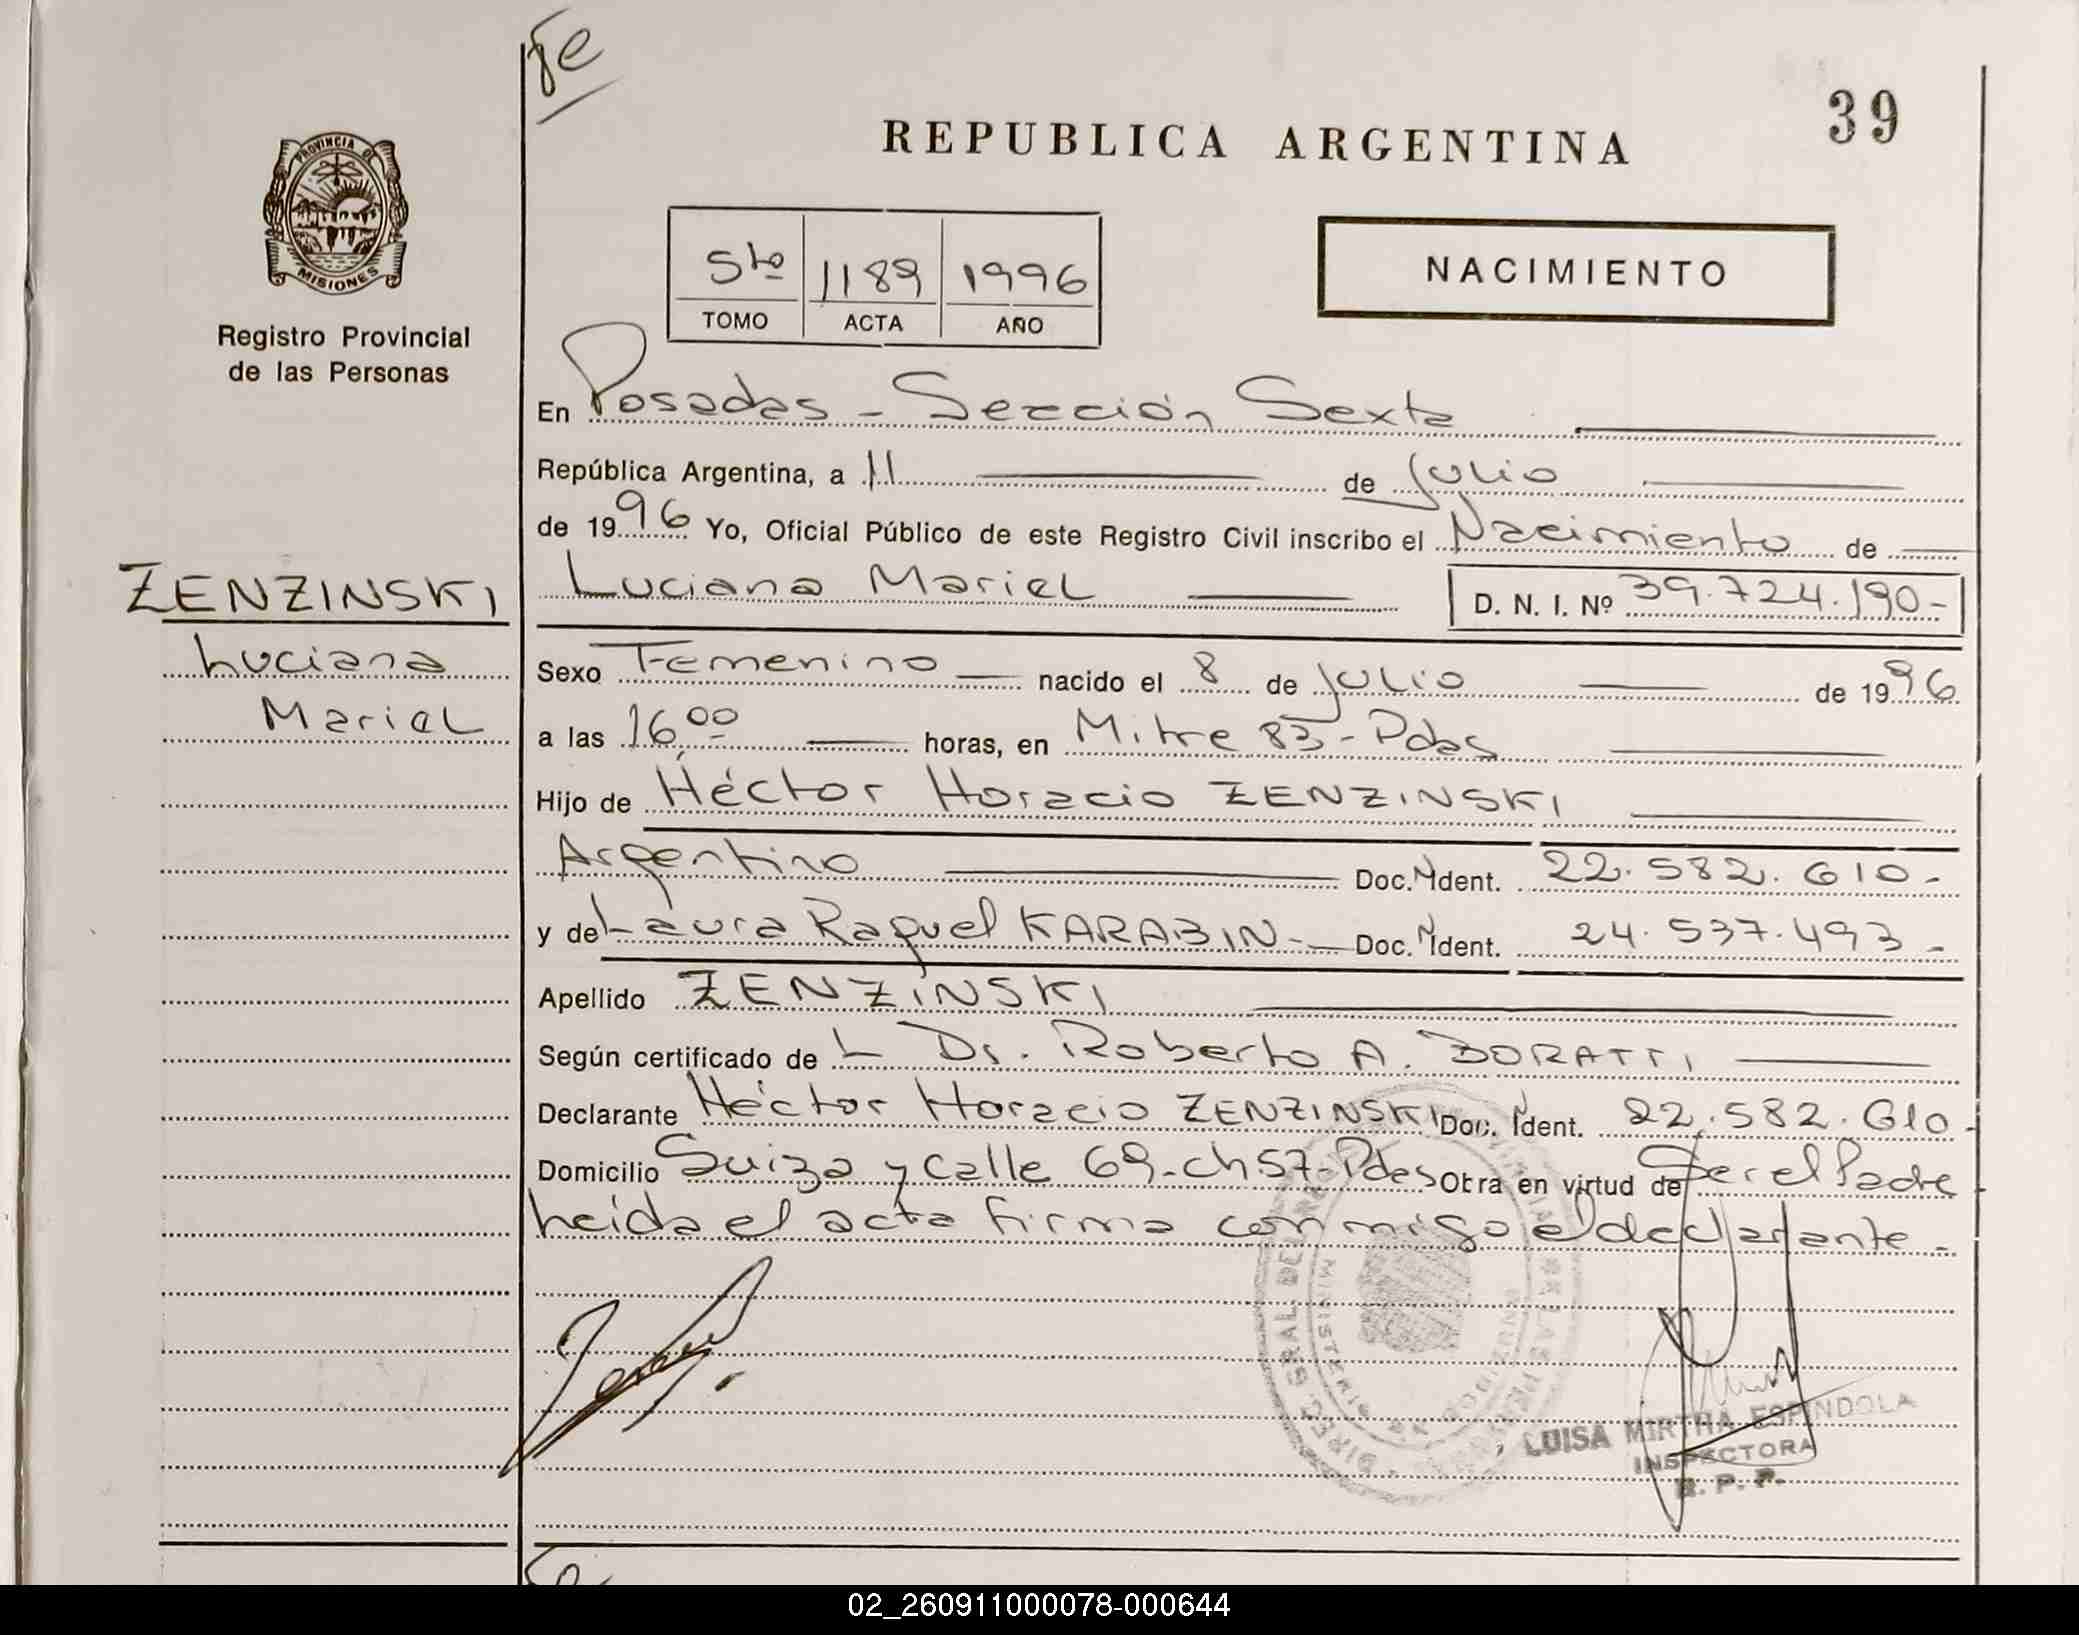 fe
39
REPUBLICA ARGENTINA
PROVINCIA DE
MISIONES
Registro Provincial
de las Personas
5to 1189 1996
TOMO ACTA AÑO
NACIMIENTO
En Posadas - Sección Sexta
República Argentina, a 11 de Julio
de 1996 Yo, Oficial Público de este Registro Civil inscribo el Nacimiento de
Luciana Mariel D. N. I. Nº 39.724.190-
ZENZINSKI
Luciana
Mariel
Sexo Femenino nacido el 8 de Julio de 1996
a las 16,00 horas, en Mitre 83 - Pdas
Hijo de Héctor Horacio ZENZINSKI
Argentino Doc. Ident. 22.582.610-
y de Laura Raquel KARABIN- Doc. Ident. 24.537.493-
Apellido ZENZINSKI
Según certificado de L Dr. Roberto A. BORATTI
Declarante Héctor Horacio ZENZINSKI Doc. Ident. 22.582.610-
Domicilio Suiza y calle 69-ch57-Pdas Obra en virtud de Ser el Padre
Leída el acta firma conmigo el declarante-
LUISA MIRTHA ESPINDOLA
INSPECTORA
R. P. P.
02_260911000078-000644